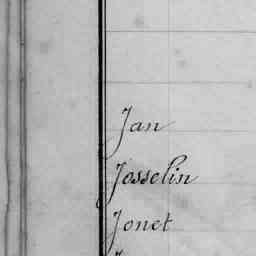 Jan
Josselin
Jonet